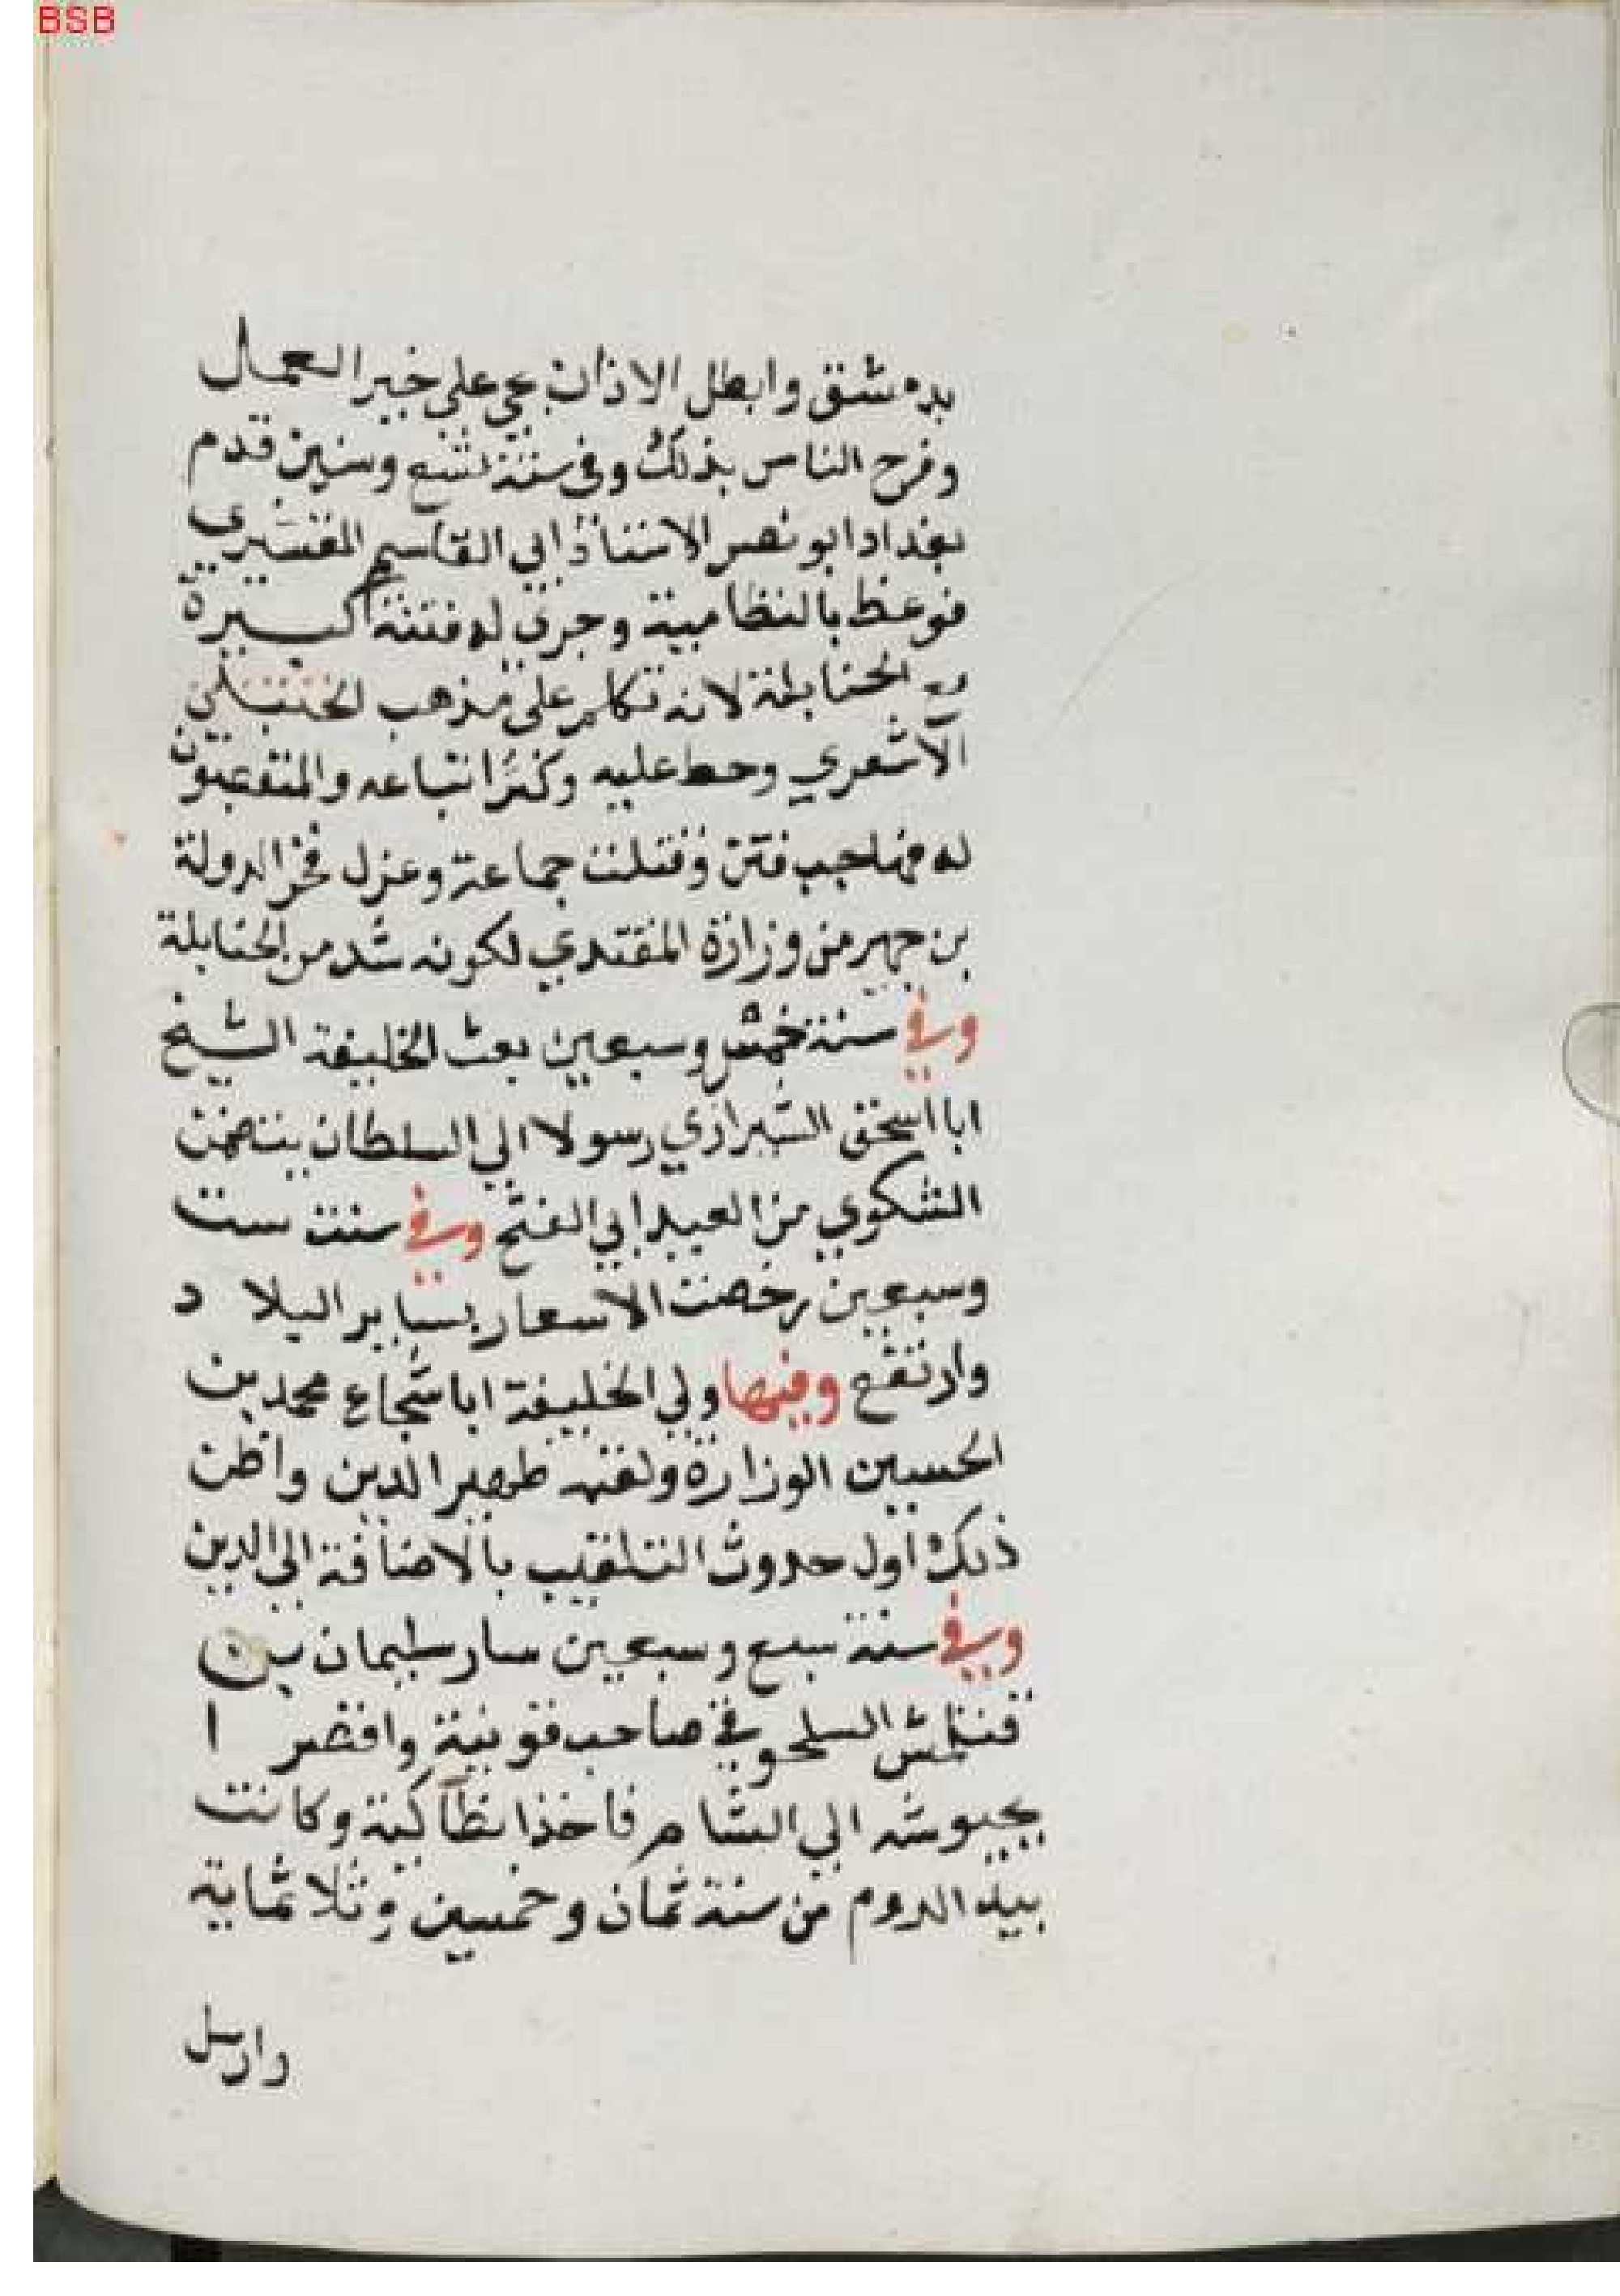 BSB
بدمشق وابطل الاذان بحي على خير العمل
وفرح الناس بذلك وفي سنة تسع وستين قدم
بغداد ابو نصر الاستاذ ابي القاسم القشيري
فوعظ بالنظامية وجرى له فتنة كبيرة
مع الحنابلة لانه تكلم على مذهب
الاشعري وحط عليه وكثر اتباعه والمتعصبون
له فهاجت فتن وقتلت جماعة وعزل فخر الدولة
بن جهير من وزارة المقتدي لكونه شد من الحنابلة
وفي سنة خمس وسبعين بعث الخليفة الشيخ
ابا اسحق الشيرازي رسولا الي السلطان يتضمن
الشكوي من العميد ابي الفتح وفي سنة ست
وسبعين رخصت الاسعار بساير البلاد
وارتفع وفيها ولي الخليفة ابا شجاع محمد بن
الحسين الوزارة ولقبه ظهير الدين واظن
ذلك اول حدوث التلقيب بالاضافة الي الدين
وفي سنة سبع وسبعين سار سليمان بن
قتلمش السلجوقي صاحب قونية واقصرا
بجيوشه الي الشام فاخذ انطاكية وكانت
بيد الروم من سنة ثمان وخمسين وثلاثماية
وارسل